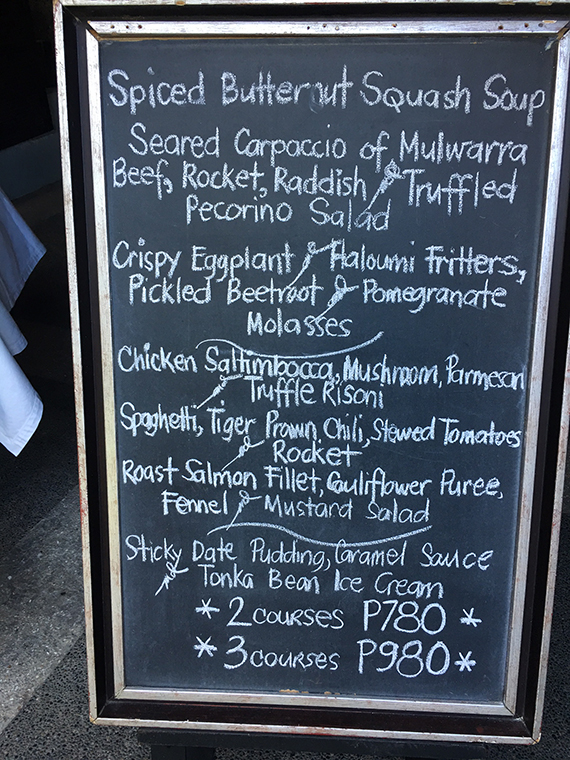 Spiced Butternut Squash Soup
Seared Carpaccio of Mulwarra
Beef, Rocket, Raddish & Truffled
Pecorino Salad
Crispy Eggplant & Haloumi Fritters,
Pickled Beetroot & Pomegranate
Molasses
Chicken Saltimbocca, Mushroom, Parmesan
& Truffle Risoni
Spaghetti, Tiger Prawn, Chili, Stewed Tomatoes
& Rocket
Roast Salmon Fillet, Cauliflower Puree,
Fennel & Mustard Salad
Sticky Date Pudding, Caramel Sauce
& Tonka Bean Ice Cream
* 2 COURSES P780 *
* 3 COURSES P980 *